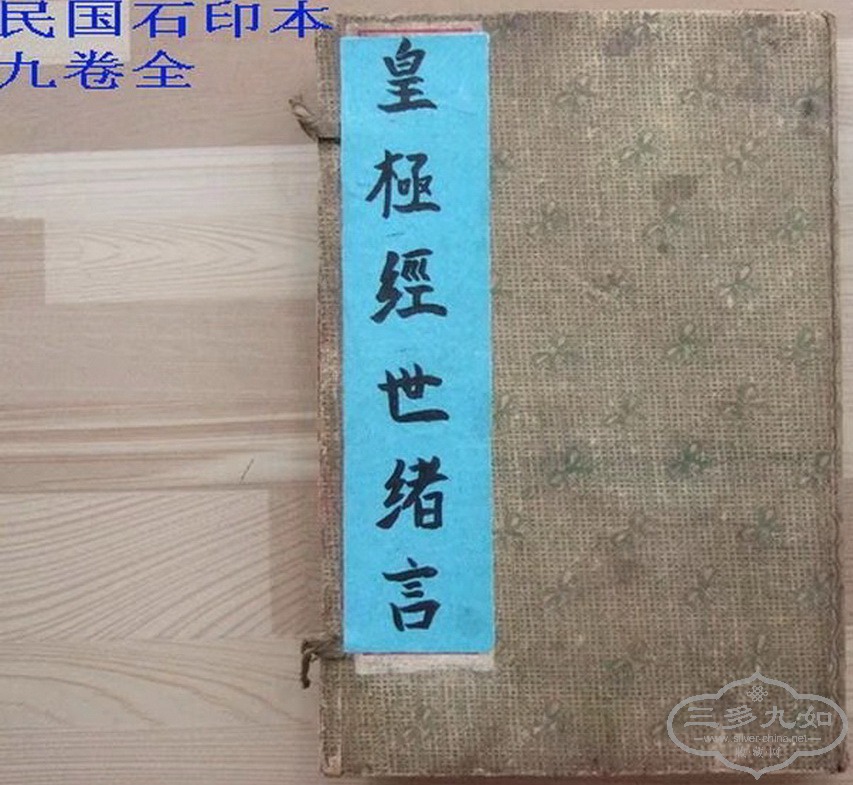 民国石印本
九卷全
皇極經世緒言
三多九如
www.silver-china.net